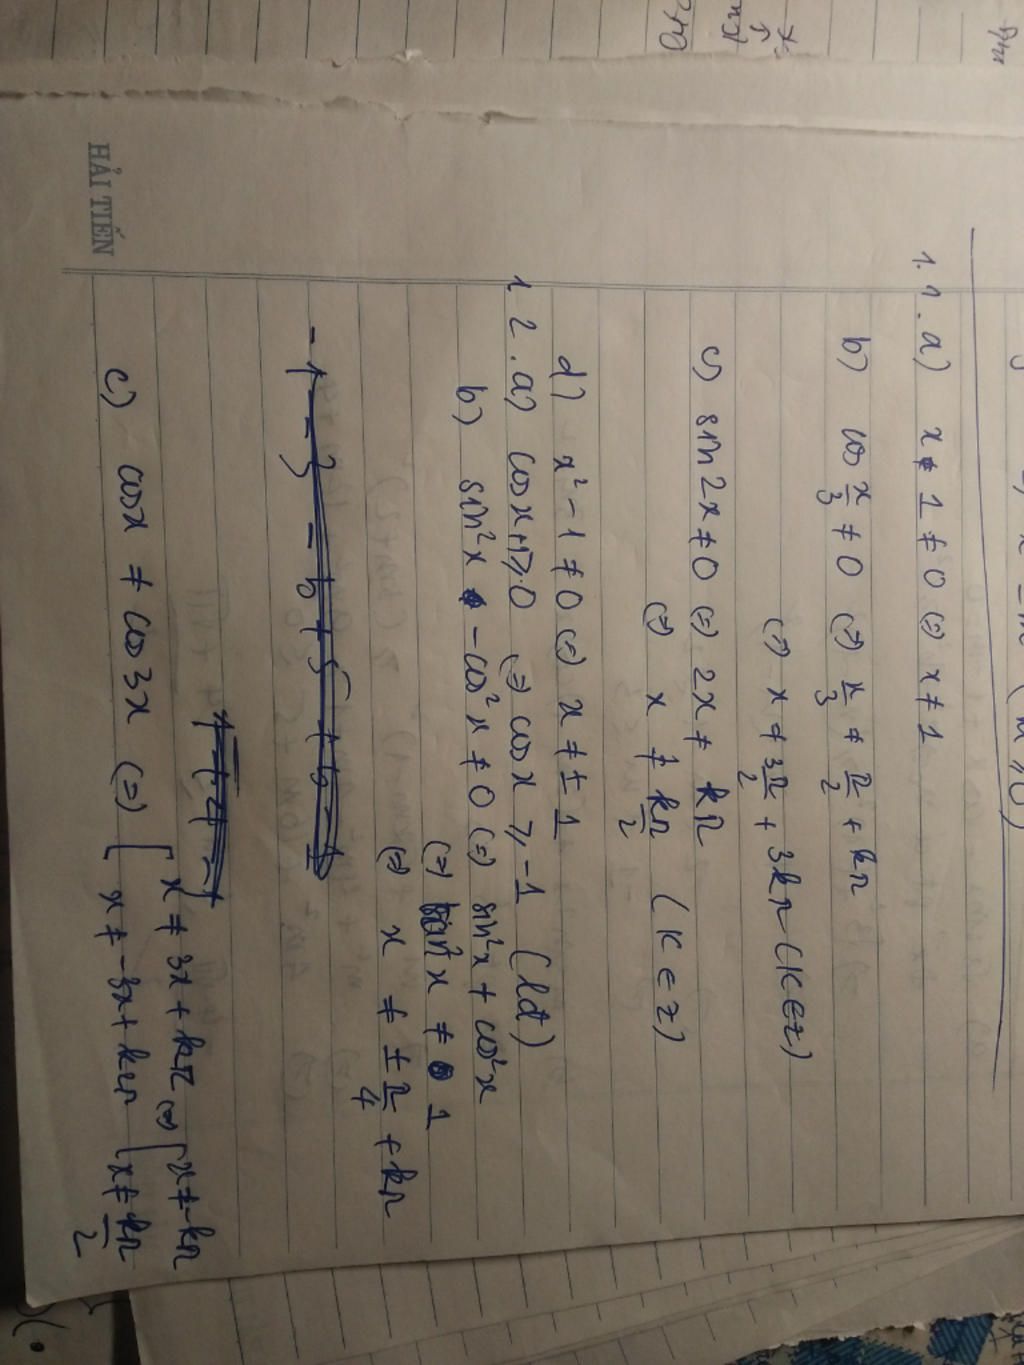 1.1. a) x - 1 ≠ 0 (=) x ≠ 1
b) cos x/3 ≠ 0 (=) x/3 ≠ π/2 + kπ
(=) x ≠ 3π/2 + 3kπ (K ∈ Z)
c) sin 2x ≠ 0 (=) 2x ≠ kπ
(=) x ≠ kπ/2 (K ∈ Z)
d) x² - 1 ≠ 0 (=) x ≠ ± 1
1.2. a) cos x + 1 ≥ 0 (=) cos x ≥ -1 (lđ)
b) sin²x - cos²x ≠ 0 (=) sin²x ≠ cos²x
(=) tan²x ≠ 1
(=) x ≠ ± π/4 + kπ
c) cos x ≠ cos 3x (=) [ x ≠ 3x + k2π (=) [ x ≠ -kπ
[ x ≠ -3x + k2π [ x ≠ kπ/2
HẢI TIẾN